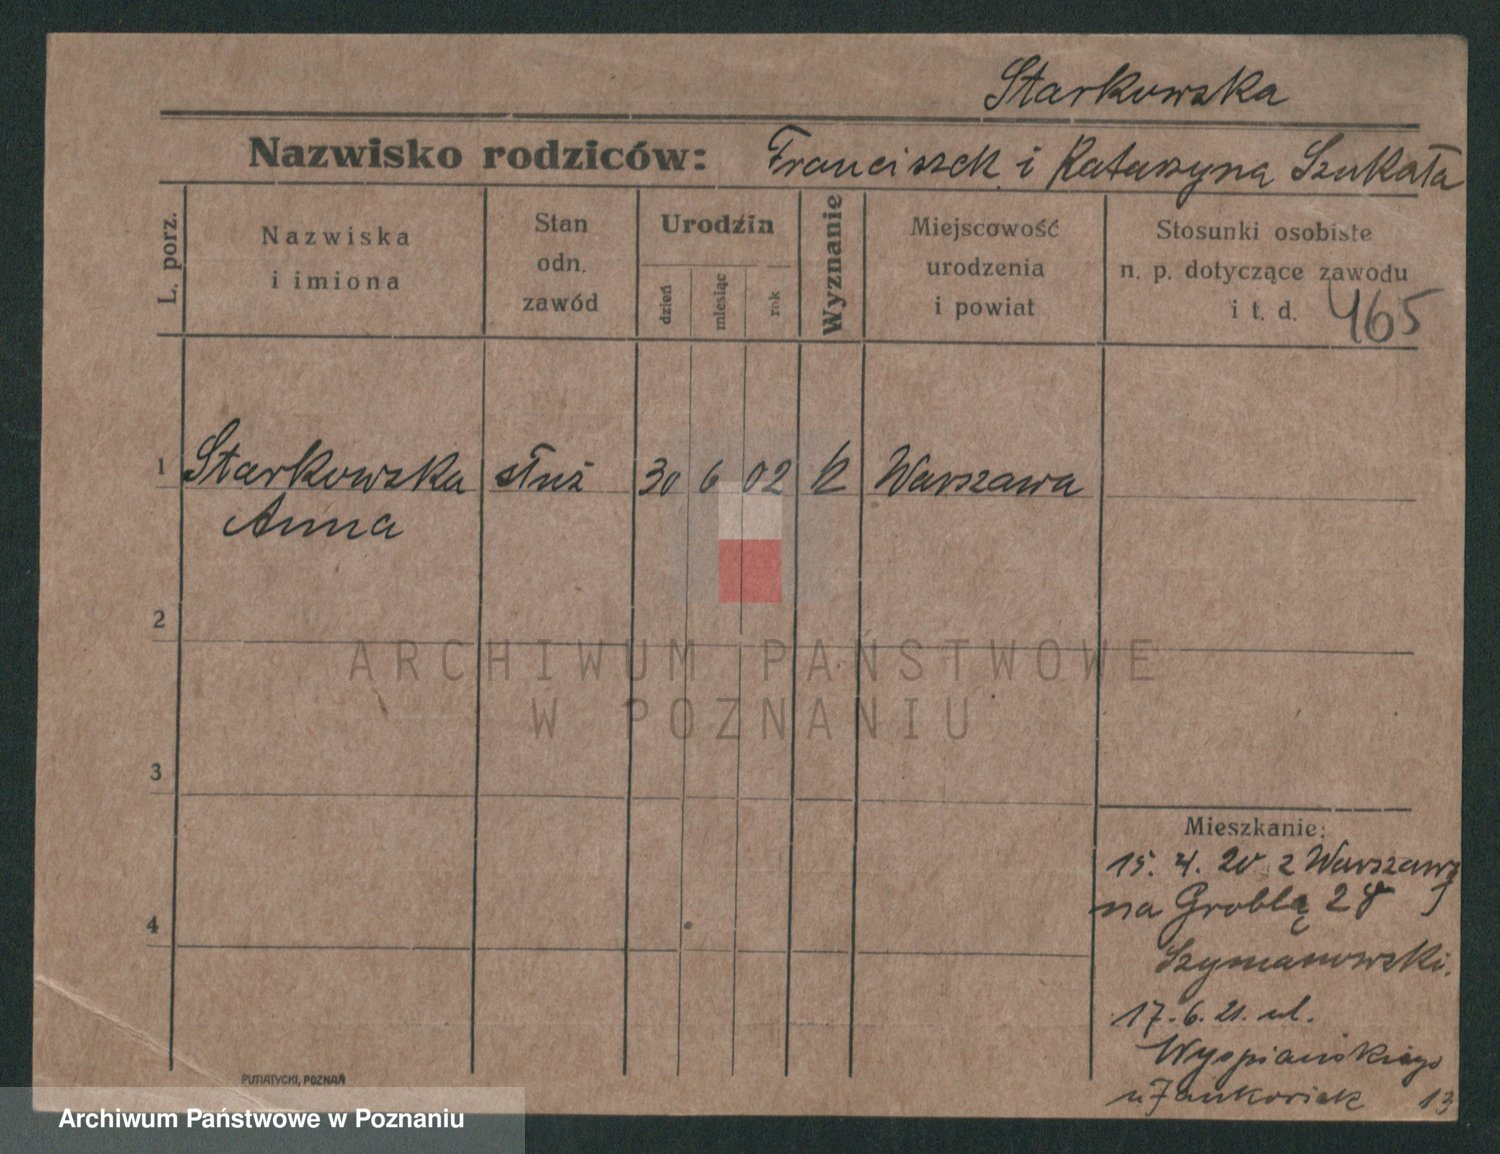 Starkowska
Nazwisko rodziców: Franciszek i Katarzyna Szukała
L. porz.
Nazwiska
i imiona
Stan
odn.
zawód
Urodzin
dzień
miesiąc
rok
Wyznanie
Miejscowość
urodzenia
i powiat
Stosunki osobiste
n. p. dotyczące zawodu
i t. d. 465
1 Starkowska służ 30 6 02 k Warszawa
Anna
2
ARCHIWUM PAŃSTWOWE
W POZNANIU
3
4
Mieszkanie:
15. 4. 20 z Warszawy
na Groblą 28
Szymanowski.
17. 6. 21. ul.
Wyspiańskiego
u 13
PUTIATYCKI, POZNAŃ
Archiwum Państwowe w Poznaniu